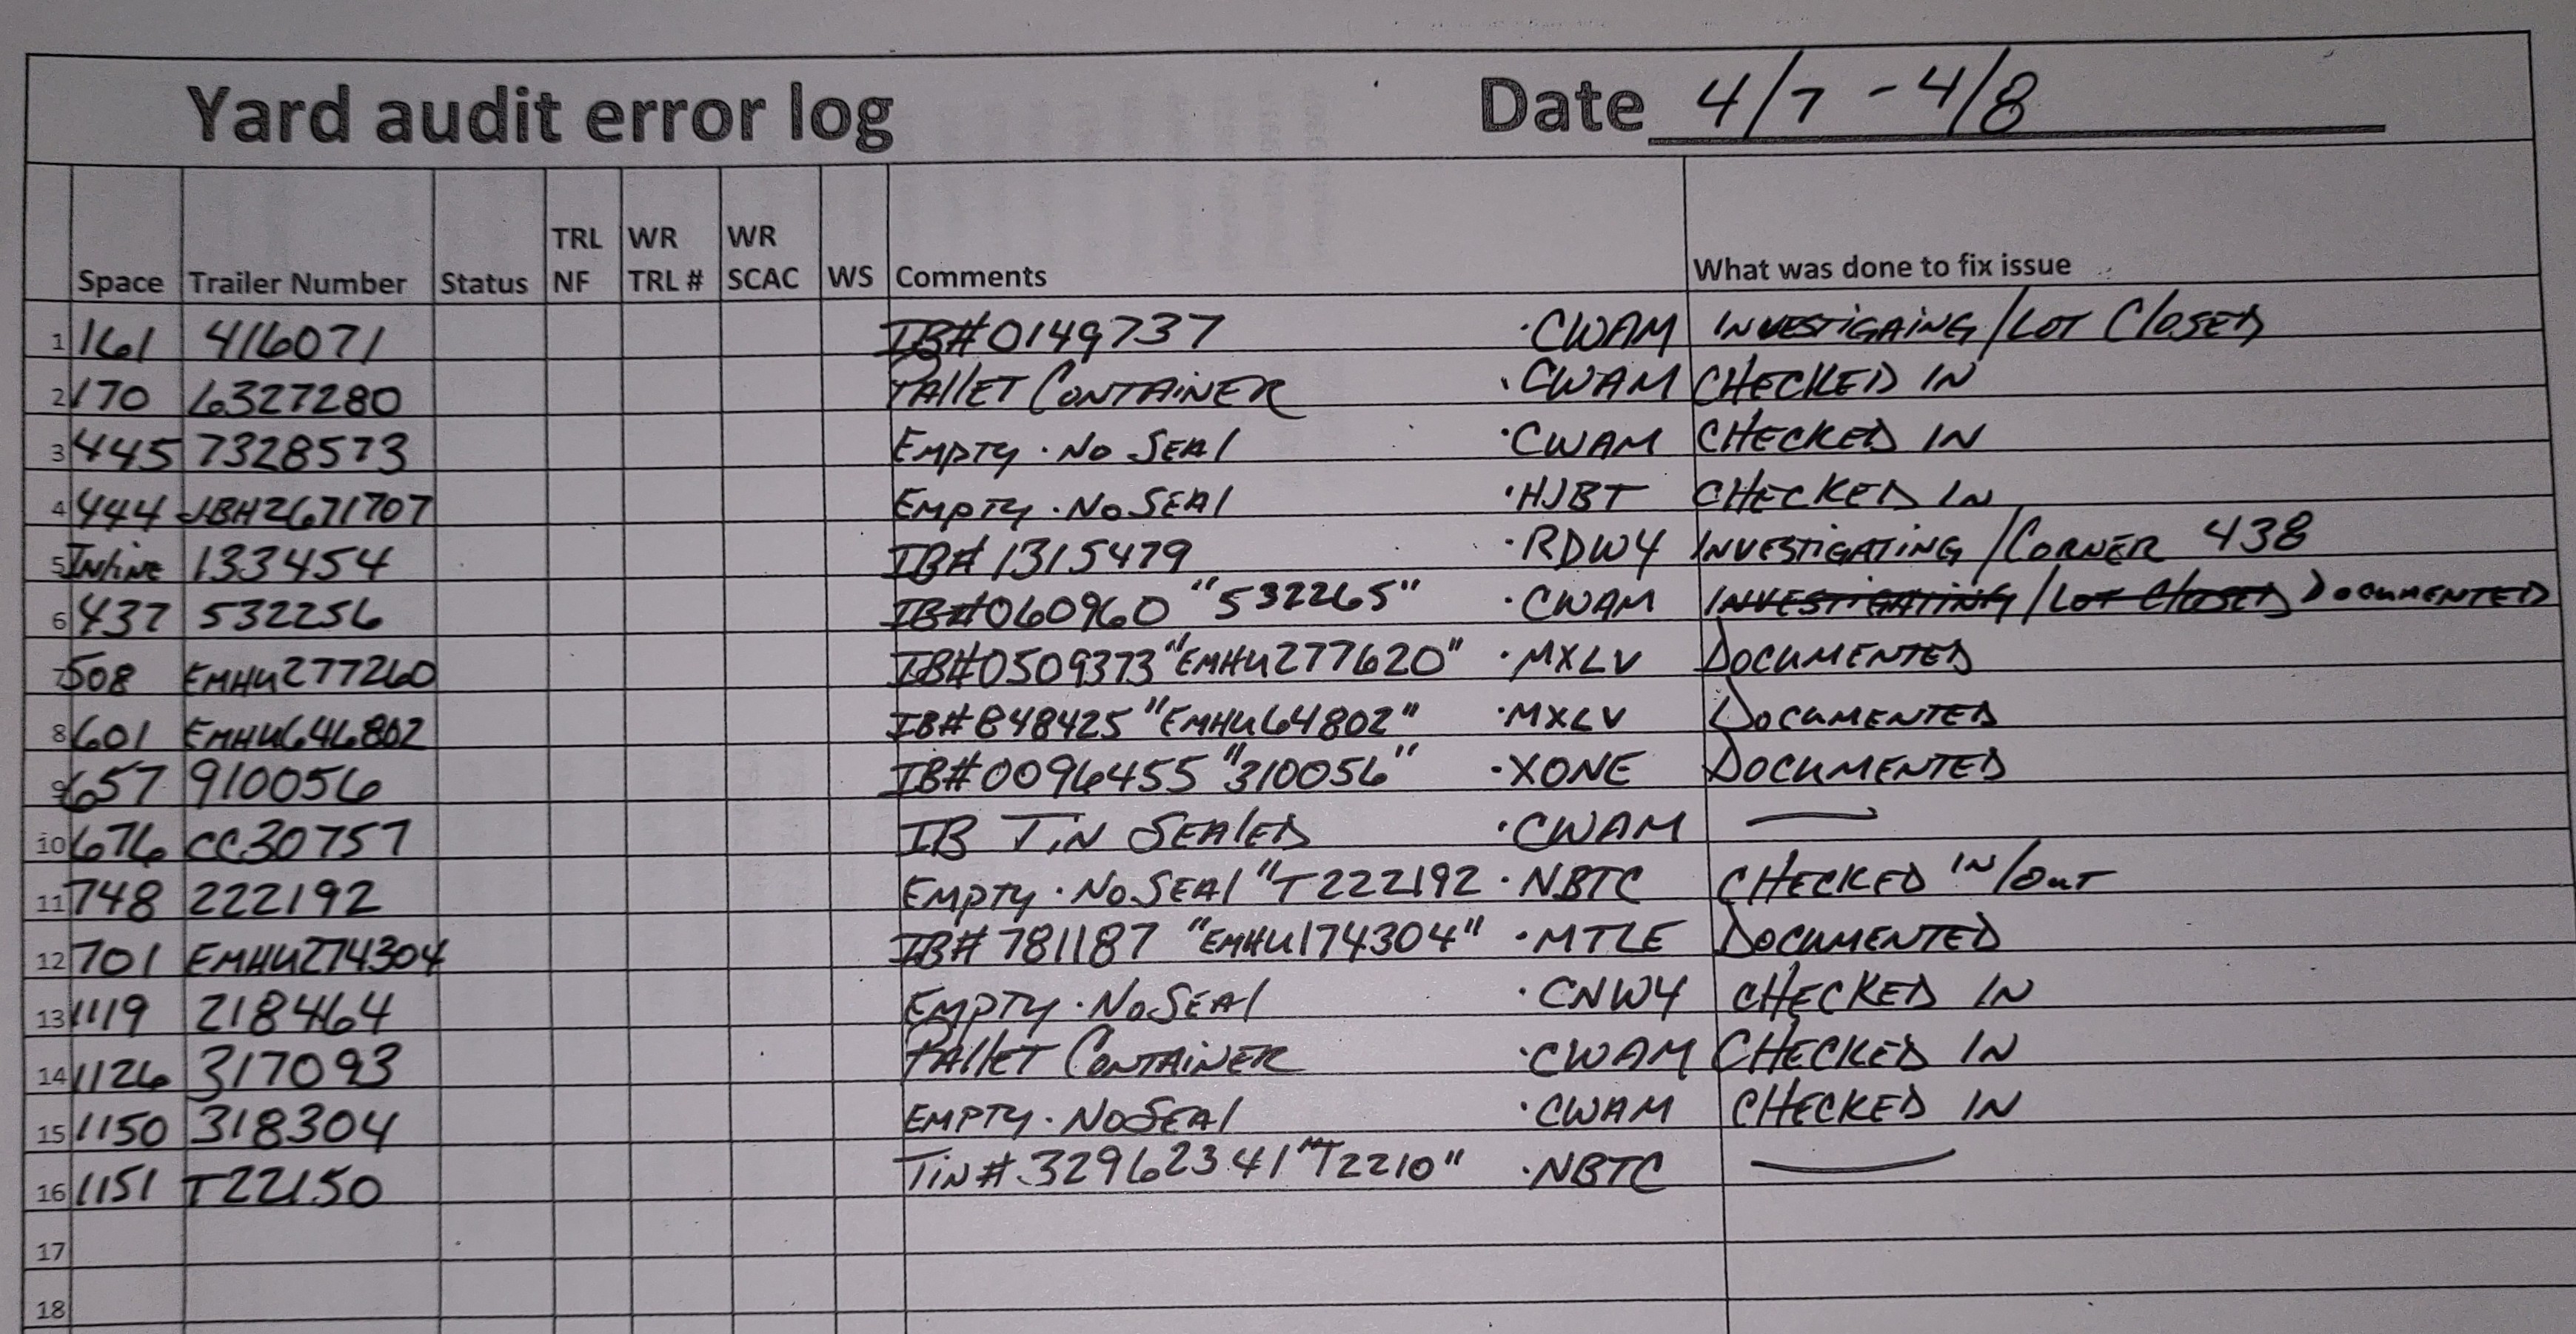 Yard audit error log Date 4/7 - 4/8
Space Trailer Number Status TRL NF WR TRL # WR SCAC WS Comments What was done to fix issue
1 161 416071 IB#0149737 ·CWAM INVESTIGAING/LOT CLOSED
2 170 6327280 PALLET CONTAINER ·CWAM CHECKED IN
3 445 7328573 EMPTY·NO SEAL ·CWAM CHECKED IN
4 444 JBHZ671707 EMPTY·NO SEAL ·HJBT CHECKED IN
5 INLINE 133454 IB# 1315479 ·RDWY INVESTIGATING/CORNER 438
6 437 532256 IB#060960 "532265" ·CWAM INVESTIGATING/LOT CLOSED DOCUMENTED
7 508 EMHU277260 IB#0509373 "EMHU277620" ·MXLV DOCUMENTED
8 601 EMHU646802 IB#848425 "EMHU64802" ·MXLV DOCUMENTED
9 657 910056 IB#0096455 "310056" ·XONE DOCUMENTED
10 676 CC30757 IB TIN SEALED ·CWAM —
11 748 222192 EMPTY·NO SEAL "T222192 ·NBTC CHECKED IN/OUT
12 701 EMHU274304 IB# 781187 "EMHU174304" ·MTLE DOCUMENTED
13 1119 218464 EMPTY·NO SEAL ·CNWY CHECKED IN
14 1126 317093 PALLET CONTAINER ·CWAM CHECKED IN
15 1150 318304 EMPTY·NO SEAL ·CWAM CHECKED IN
16 1151 T22150 TIN# 32962341 "T2210" ·NBTC —
17
18